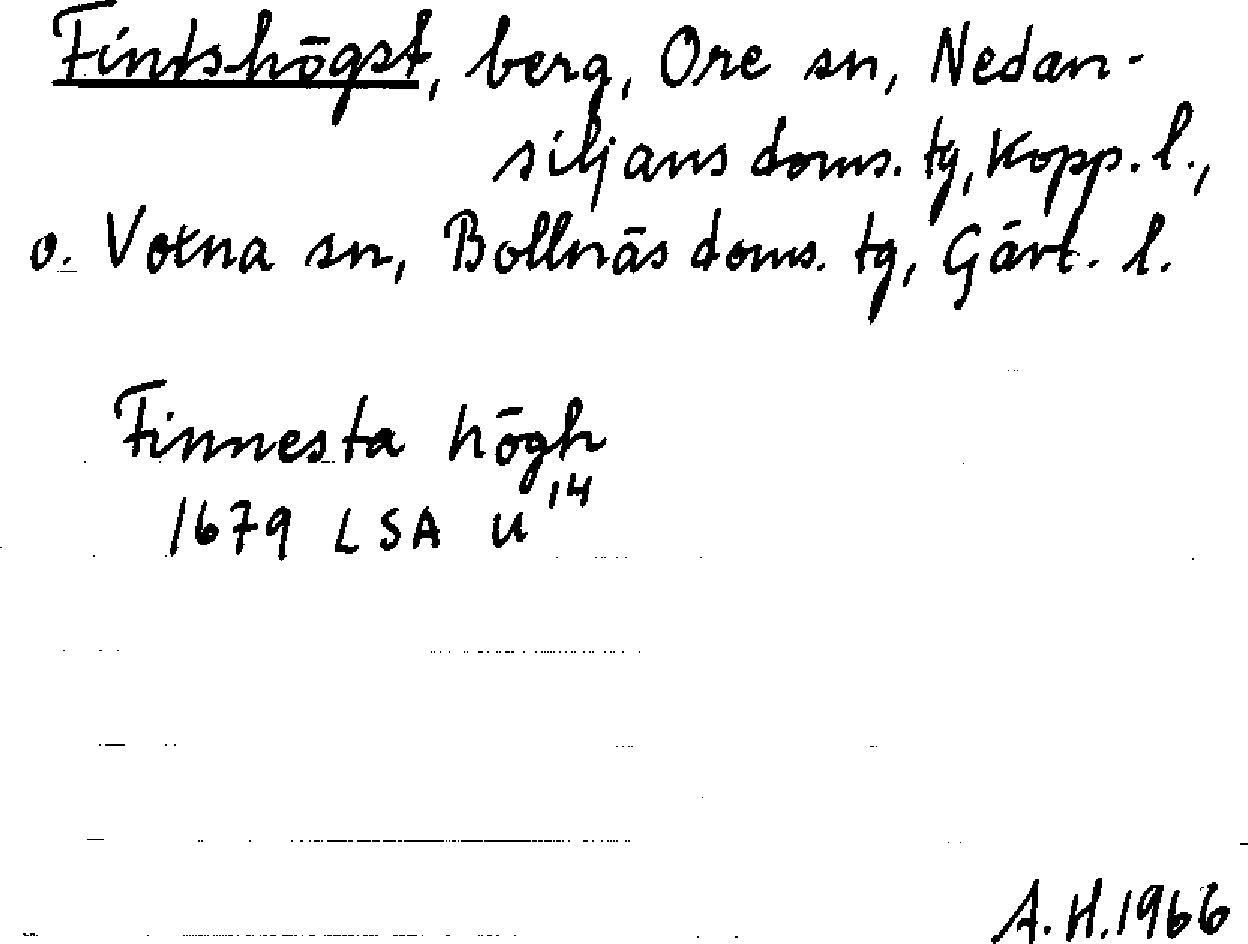 Fintshögst, berg, Ore sn, Nedan-
siljans doms. tg, Kopp. l.,
o. Voxna sn, Bollnäs doms. tg, Gävl. l.
Finnesta högh
1679 LSA U 14
A.H.1966